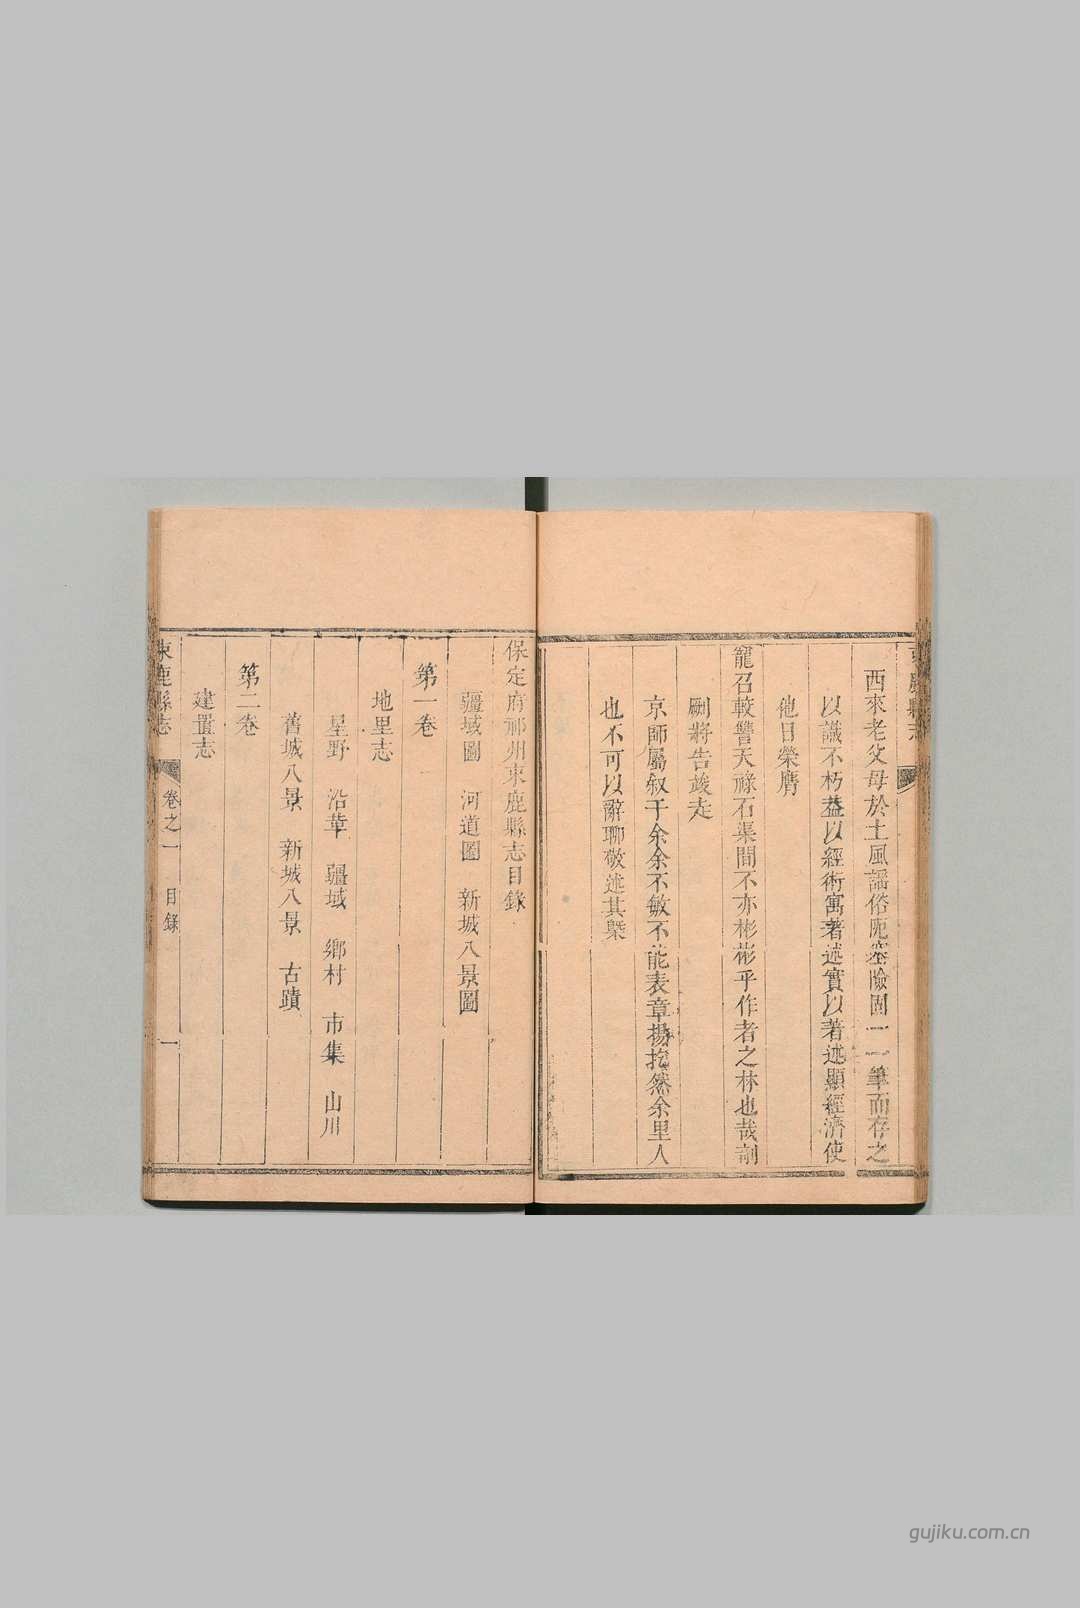 西來老父母於土風謡俗阨塞險固一一筆而存之
以識不朽葢以經術寓著述實以著述顯經濟使
他日榮膺
寵召較讐天祿石渠間不亦彬彬乎作者之林也哉剞
劂將告竣走
京師屬叙于余余不敏不能表章揚扢然余里人
也不可以辭聊敬述其槩
保定府祁州束鹿縣志目錄
疆域圖 河道圖 新城八景圖
第一卷
地里志
星野 沿革 疆域 鄉村 市集 山川
舊城八景 新城八景 古蹟
第二卷
建置志
束鹿縣志 卷之一 目錄 一
gujiku.com.cn